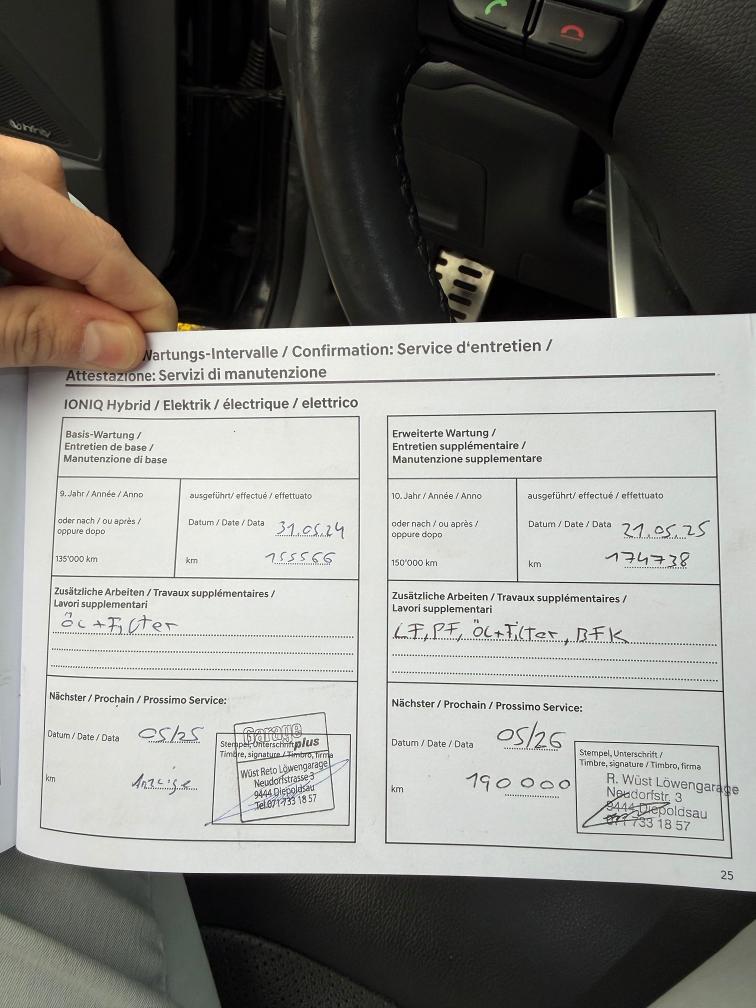 Infinity
Wartungs-Intervalle / Confirmation: Service d'entretien /
Attestazione: Servizi di manutenzione
IONIQ Hybrid / Elektrik / électrique / elettrico
Basis-Wartung /
Entretien de base /
Manutenzione di base
9. Jahr / Année / Anno
ausgeführt/ effectué / effettuato
oder nach / ou après /
oppure dopo
Datum / Date / Data 31.05.24
135'000 km
km 155566
Zusätzliche Arbeiten / Travaux supplémentaires /
Lavori supplementari
Öl + Filter
Nächster / Prochain / Prossimo Service:
Datum / Date / Data 05/25
km Anzeige
Stempel, Unterschrift /
Timbre, signature / Timbro, firma
Garage
plus
Wüst Reto Löwengarage
Neudorfstrasse 3
9444 Diepoldsau
Tel.071 733 18 57
Erweiterte Wartung /
Entretien supplémentaire /
Manutenzione supplementare
10. Jahr / Année / Anno
ausgeführt/ effectué / effettuato
oder nach / ou après /
oppure dopo
Datum / Date / Data 21.05.25
150'000 km
km 174738
Zusätzliche Arbeiten / Travaux supplémentaires /
Lavori supplementari
LF, PF, Öl + Filter, BFK
Nächster / Prochain / Prossimo Service:
Datum / Date / Data 05/26
km 190000
Stempel, Unterschrift /
Timbre, signature / Timbro, firma
R. Wüst Löwengarage
Neudorfstr. 3
9444 Diepoldsau
071 733 18 57
25